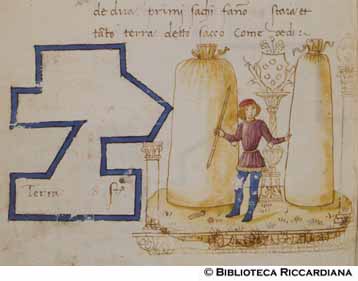 de dua primi sachi fano staia et
tāto terra detto sacco Come vedi :
Terra
© BIBLIOTECA RICCARDIANA